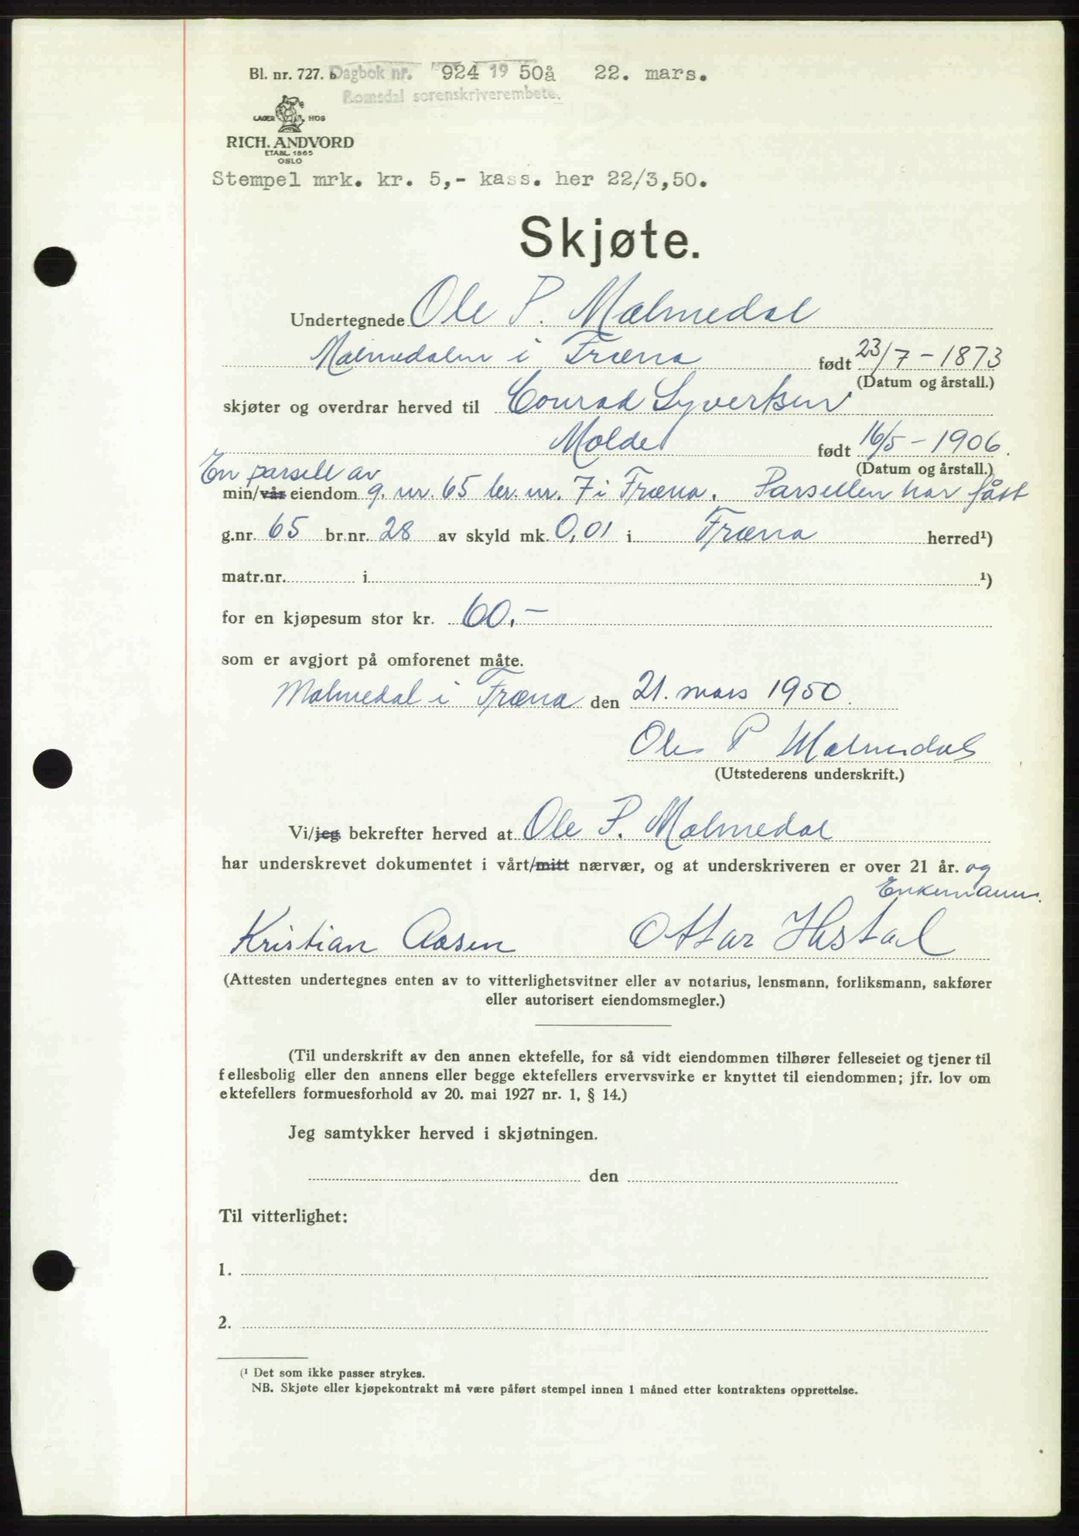 Bl. nr. 727. b Dagbok nr. 924 19 50å 22. mars.
Romsdal sorenskriverembete.
LAGER HOS
RICH. ANDVORD
ETABL. 1865
OSLO
Stempel mrk. kr. 5,- kass. her 22/3,50.
Skjøte.
Undertegnede Ole P. Malmedal
Malmedalen i Fræna født 23/7 - 1873
(Datum og årstall.)
skjøter og overdrar herved til Conrad Syvertsen
Molde født 16/5 - 1906.
(Datum og årstall.)
En parsell av
min/vår eiendom g. nr. 65 br. nr. 7 i Fræna. Parsellen har fått
g.nr. 65 br.nr. 28 av skyld mk. 0,01 i Fræna herred¹)
matr.nr. i ¹)
for en kjøpesum stor kr. 60.-
som er avgjort på omforenet måte.
Malmedal i Fræna den 21. mars 1950.
Ole P Malmedal
(Utstederens underskrift.)
Vi/jeg bekrefter herved at Ole P. Malmedal
har underskrevet dokumentet i vårt/mitt nærvær, og at underskriveren er over 21 år. og
Enkemann.
Kristian Aasen Ottar Hustad
(Attesten undertegnes enten av to vitterlighetsvitner eller av notarius, lensmann, forliksmann, sakfører
eller autorisert eiendomsmegler.)
(Til underskrift av den annen ektefelle, for så vidt eiendommen tilhører felleseiet og tjener til
fellesbolig eller den annens eller begge ektefellers ervervsvirke er knyttet til eiendommen; jfr. lov om
ektefellers formuesforhold av 20. mai 1927 nr. 1, § 14.)
Jeg samtykker herved i skjøtningen.
den
Til vitterlighet:
1.
2.
(¹ Det som ikke passer strykes.
NB. Skjøte eller kjøpekontrakt må være påført stempel innen 1 måned etter kontraktens opprettelse.